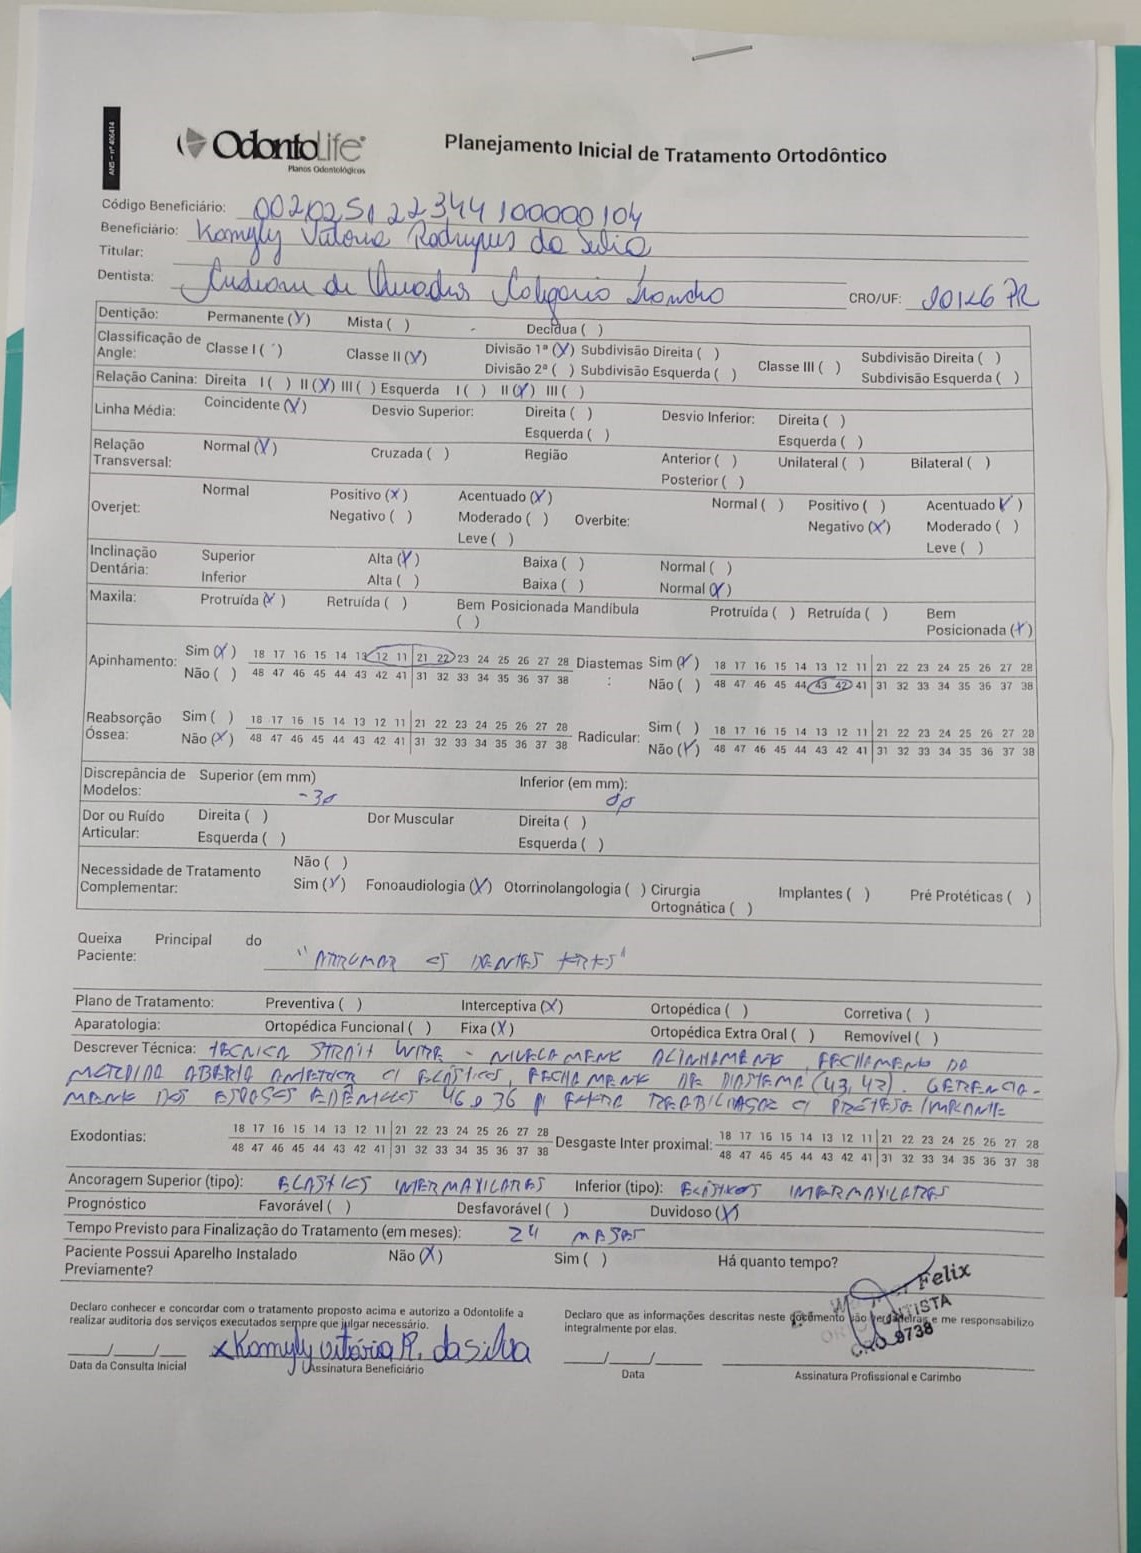 ANS - nº 406414
OdontoLife®
Planos Odontológicos
Planejamento Inicial de Tratamento Ortodôntico
Código Beneficiário: 00202512234410000010​4
Beneficiário: Komyly Vitoria Rodrigues da Silva
Titular:
Dentista: de Quadros
CRO/UF: 20126 PR
Dentição: Permanente (X) Mista ( ) Decídua ( )
Classificação de Angle: Classe I ( ) Classe II (X) Divisão 1ª (X) Subdivisão Direita ( ) Divisão 2ª ( ) Subdivisão Esquerda ( ) Classe III ( ) Subdivisão Direita ( ) Subdivisão Esquerda ( )
Relação Canina: Direita I ( ) II (X) III ( ) Esquerda I ( ) II (X) III ( )
Linha Média: Coincidente (X) Desvio Superior: Direita ( ) Esquerda ( ) Desvio Inferior: Direita ( ) Esquerda ( )
Relação Transversal: Normal (X) Cruzada ( ) Região Anterior ( ) Posterior ( ) Unilateral ( ) Bilateral ( )
Overjet: Normal Positivo (X) Negativo ( ) Acentuado (X) Moderado ( ) Leve ( ) Overbite: Normal ( ) Positivo ( ) Negativo (X) Acentuado (X) Moderado ( ) Leve ( )
Inclinação Dentária: Superior Alta (X) Baixa ( ) Normal ( )
Inferior Alta ( ) Baixa ( ) Normal (X)
Maxila: Protruída (X) Retruída ( ) Bem Posicionada ( ) Mandíbula Protruída ( ) Retruída ( ) Bem Posicionada (X)
Apinhamento: Sim (X) 18 17 16 15 14 13 12 11 21 22 23 24 25 26 27 28 Diastemas: Sim (X) 18 17 16 15 14 13 12 11 21 22 23 24 25 26 27 28
Não ( ) 48 47 46 45 44 43 42 41 31 32 33 34 35 36 37 38 Não ( ) 48 47 46 45 44 43 42 41 31 32 33 34 35 36 37 38
Reabsorção Óssea: Sim ( ) 18 17 16 15 14 13 12 11 21 22 23 24 25 26 27 28 Radicular: Sim ( ) 18 17 16 15 14 13 12 11 21 22 23 24 25 26 27 28
Não (X) 48 47 46 45 44 43 42 41 31 32 33 34 35 36 37 38 Não (X) 48 47 46 45 44 43 42 41 31 32 33 34 35 36 37 38
Discrepância de Modelos: Superior (em mm) Inferior (em mm):
Dor ou Ruído Articular: Direita ( ) Esquerda ( ) Dor Muscular Direita ( ) Esquerda ( )
Necessidade de Tratamento Complementar: Não ( ) Sim (X) Fonoaudiologia (X) Otorrinolangologia ( ) Cirurgia Ortognática ( ) Implantes ( ) Pré Protéticas ( )
Queixa Principal do Paciente: "ARRUMAR OS DENTES"
Plano de Tratamento: Preventiva ( ) Interceptiva (X) Ortopédica ( ) Corretiva ( )
Aparatologia: Ortopédica Funcional ( ) Fixa (X) Ortopédica Extra Oral ( ) Removível ( )
Descrever Técnica: TÉCNICA STRAIT WIRE - NIVELAMENTO ALINHAMENTO, FECHAMENTO DA
MORDIDA ABERTA ANTERIOR C/ ELÁSTICOS, FECHAMENTO DE DIASTEMA (43,42). GERENCIA-
MENTO DOS ESPAÇOS EDÊNTULOS 46 e 36 p/ FUTURA REABILITAÇÃO C/ PRÓTESE/IMPLANTE
Exodontias: 18 17 16 15 14 13 12 11 21 22 23 24 25 26 27 28 Desgaste Inter proximal: 18 17 16 15 14 13 12 11 21 22 23 24 25 26 27 28
48 47 46 45 44 43 42 41 31 32 33 34 35 36 37 38 48 47 46 45 44 43 42 41 31 32 33 34 35 36 37 38
Ancoragem Superior (tipo): ELÁSTICOS INTERMAXILARES Inferior (tipo): ELÁSTICOS INTERMAXILARES
Prognóstico Favorável ( ) Desfavorável ( ) Duvidoso (X)
Tempo Previsto para Finalização do Tratamento (em meses): 24 MESES
Paciente Possui Aparelho Instalado Previamente? Não (X) Sim ( ) Há quanto tempo?
Declaro conhecer e concordar com o tratamento proposto acima e autorizo a Odontolife a
realizar auditoria dos serviços executados sempre que julgar necessário.
Declaro que as informações descritas neste documento são verdadeiras e me responsabilizo
integralmente por elas.
Felix
CRO 9738
x Komyly vitória R. da silva
___/___/___ ___/___/___
Data da Consulta Inicial Assinatura Beneficiário Data Assinatura Profissional e Carimbo